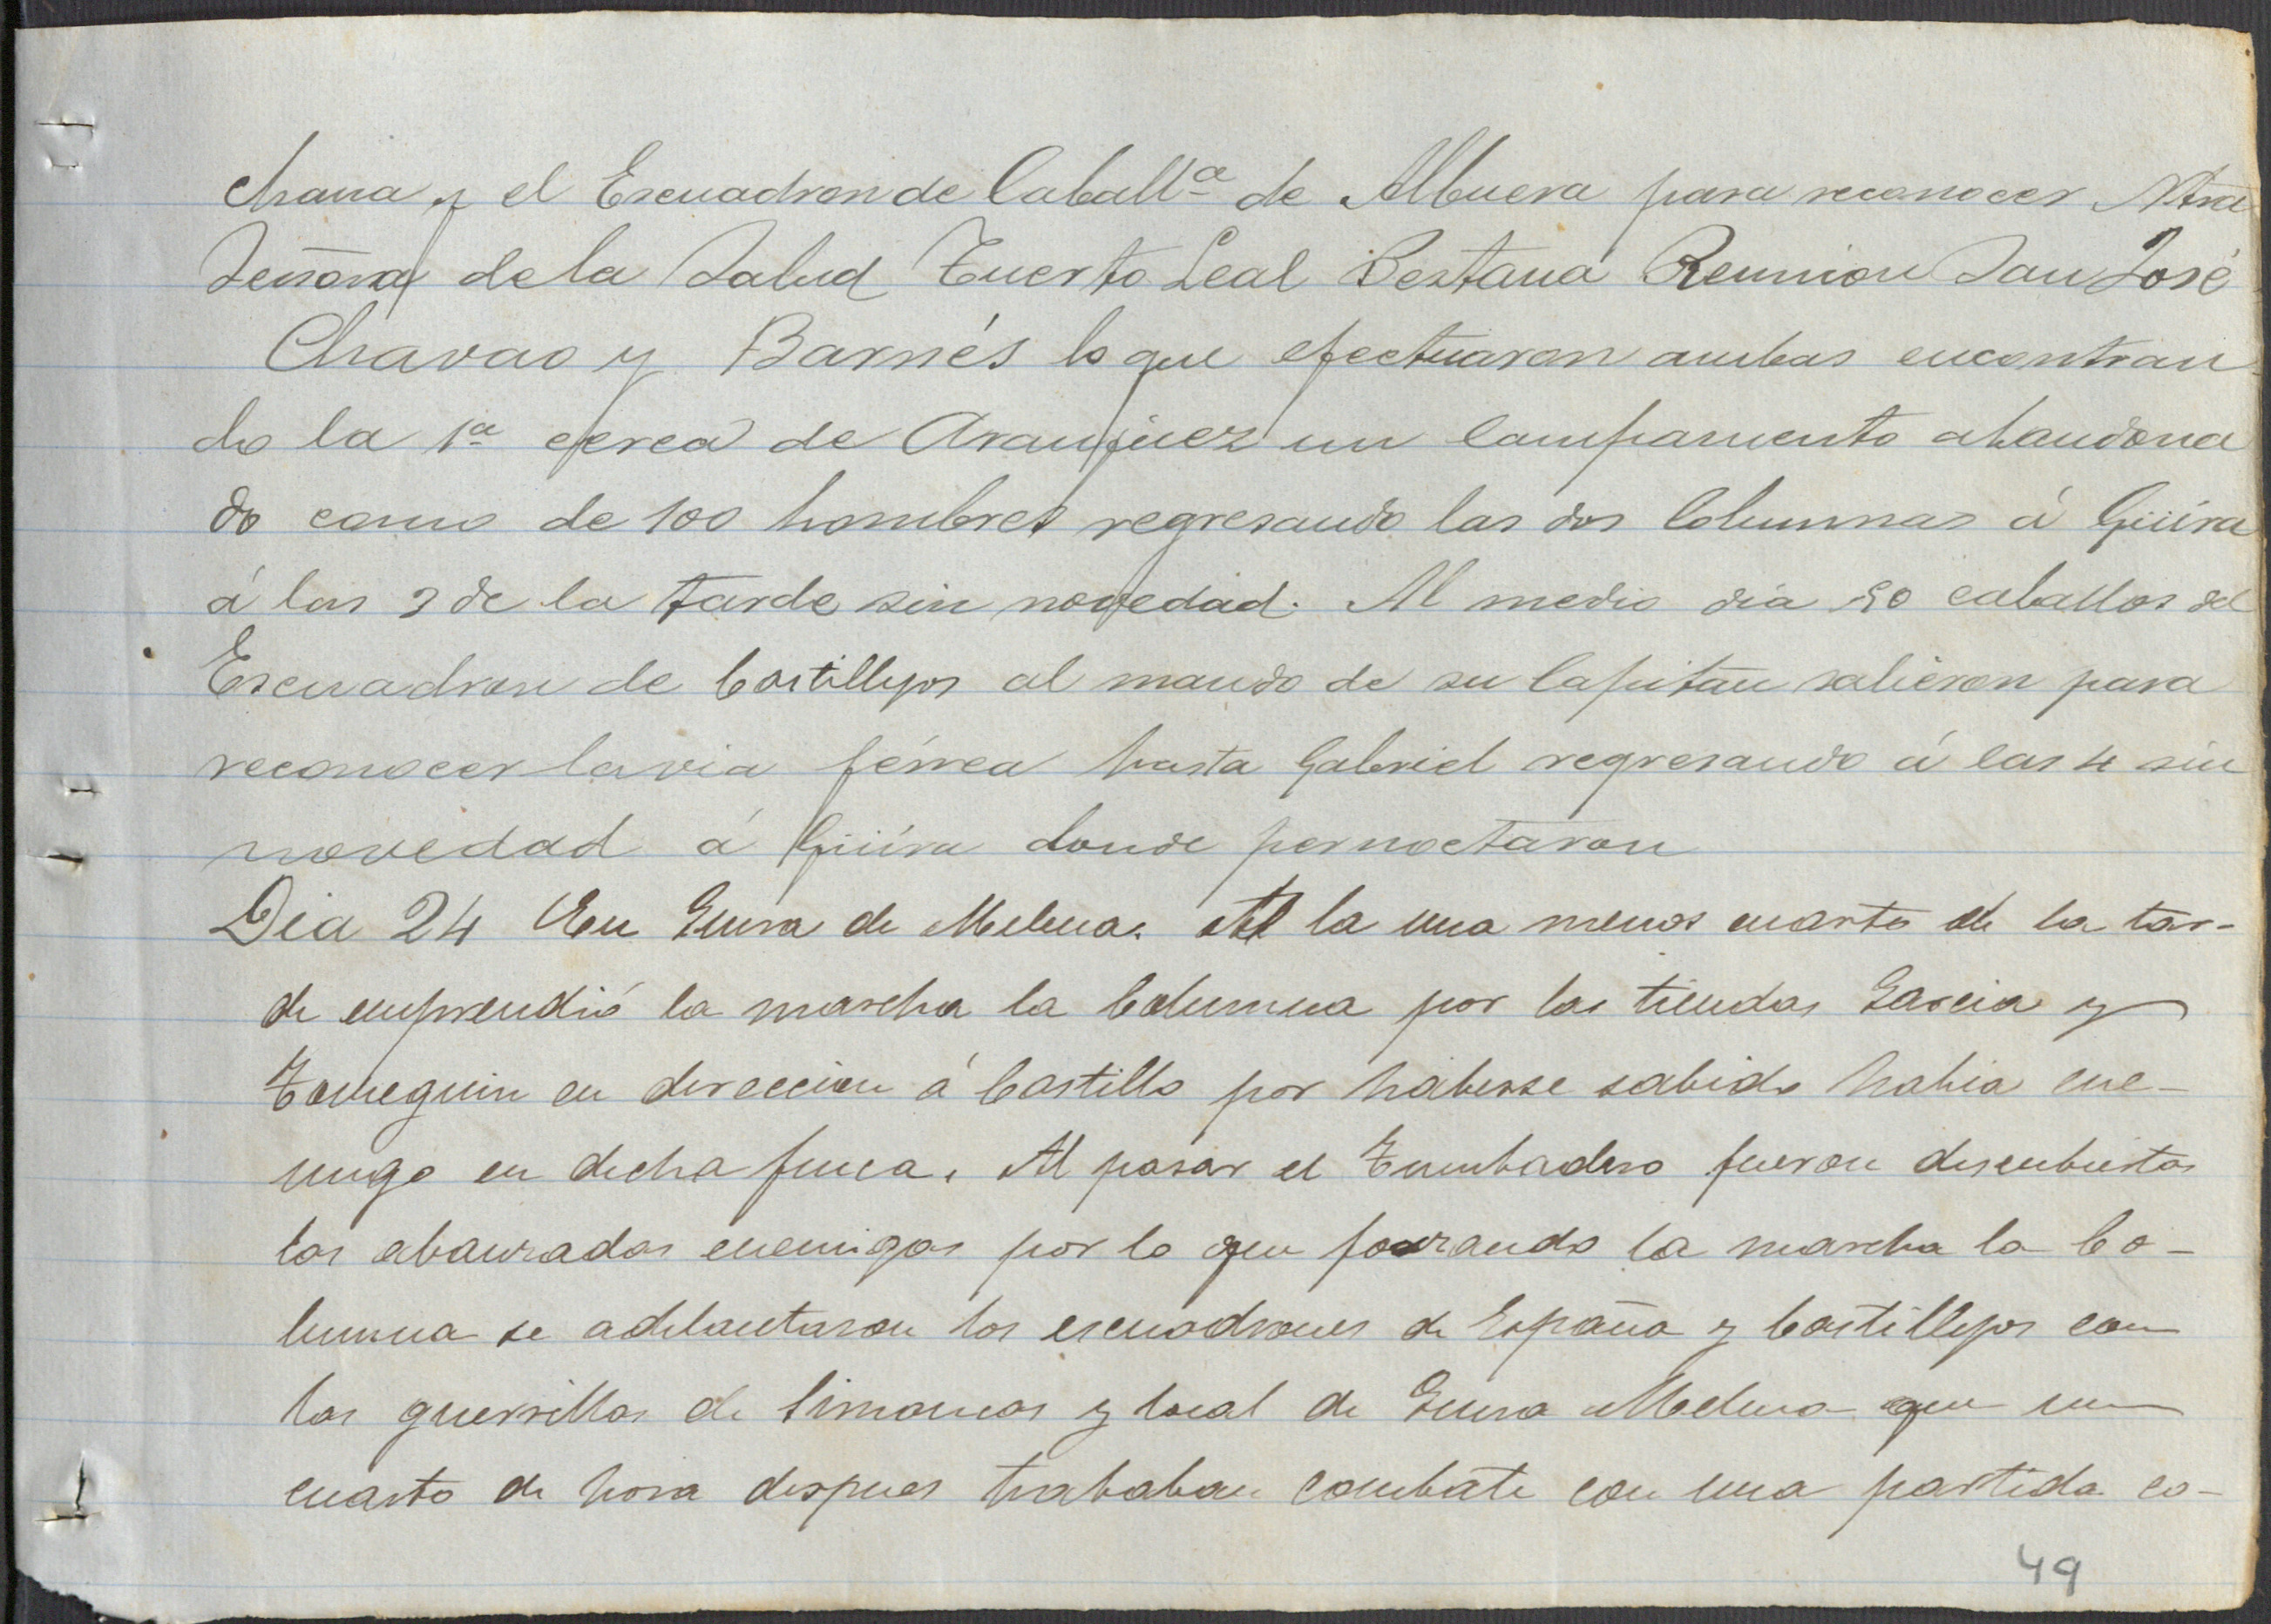 chana y el Escuadron de Caballª de Albuera para reconocer Ntra
Señora de la Salud Tuerto Leal Beztana Reunion San José
Chavao y Barnés lo que efectuaron ambas encontran
do la 1ª cerca de Aranjuez un Campamento abandona
do como de 100 hombres regresando las dos Columnas á Güira
á las 3 de la tarde sin novedad. Al medio dia 50 caballos del
Escuadron de Castillejos al mando de su Capitan salieron para
reconocer la via férrea hasta Gabriel regresando á las 4 sin
novedad á Güira donde pernoctaron
Dia 24 En Guira de Melena. A la una menos cuarto de la tar-
de emprendió la marcha la Columna por las tiendas Garcia y
Tomeguin en direccion á Castillo por haberse sabido habia ene-
migo en dicha finca. Al pasar el Tumbadero fueron descubiertas
las abanzadas enemigas por lo que forzando la marcha la Co-
lumna se adelantaron los escuadrones de España y Castillejos con
las guerrillas de Simancas y local de Guira Melena que un
cuarto de hora despues trababan combate con una partida co-
49